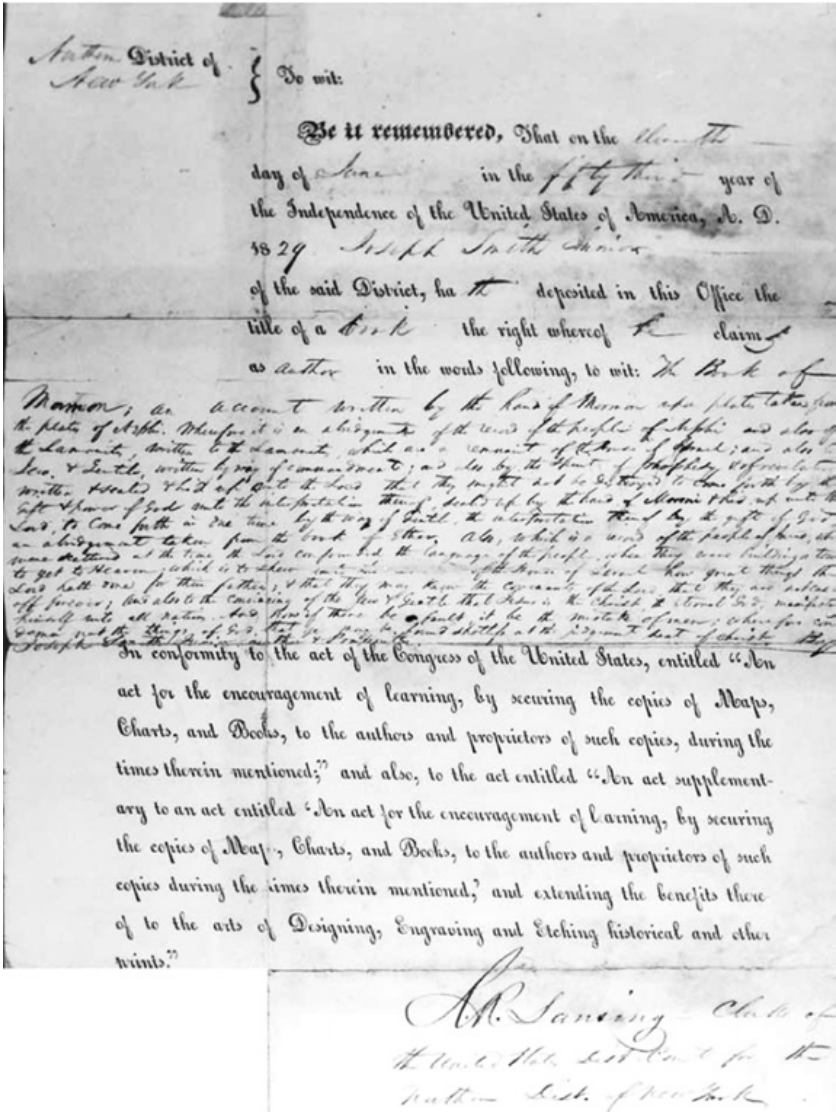 Northern District of
New York
To wit:
Be it remembered, That on the eleventh
day of June in the fifty third year of
the Independence of the United States of America, A. D.
1829 Joseph Smith Junior
of the said District, ha th deposited in this Office the
title of a book the right whereof he claims
as author in the words following, to wit: The Book of
Mormon; an account written by the hand of Mormon upon plates taken from
the plates of Nephi. Wherefore it is an abridgment of the record of the people of Nephi and also of
the Lamanites, written to the Lamanites, which are a remnant of the House of Israel; and also to
Jew, & Gentile, written by way of commandment; and also by the Spirit of prophesy & of revelation
written & sealed & hid up unto the Lord that they might not be destroyed to come forth by the
gift & power of God unto the interpretation thereof, sealed up by the hand of Moroni & hid up unto the
Lord, to come forth in due time by the way of Gentile, the interpretation thereof by the gift of God
an abridgement taken from the book of Ether. Also, which is a record of the people of Jared, who
were scattered at the time the Lord confounded the language of the people when they were building a tower
to get to Heaven; which is to shew unto the of the House of Israel how great things the
Lord hath done for their fathers; & that they may know the covenants of the Lord that they are not cast
off forever; and also to the convincing of the Jew & Gentile that Jesus is the Christ the eternal God, manifesting
himself unto all nations. And now if there be fault it be the mistake of men; wherefore con
demn not the things of God, that ye may be found spotless at the judgment seat of christ. By
Joseph Smith
In conformity to the act of the Congress of the United States, entitled “An
act for the encouragement of learning, by securing the copies of Maps,
Charts, and Books, to the authors and proprietors of such copies, during the
times therein mentioned;” and also, to the act entitled “An act supplement-
ary to an act entitled ‘An act for the encouragement of l arning, by securing
the copies of Map , Charts, and Books, to the authors and proprietors of such
copies during the times therein mentioned,’ and extending the benefits there
of to the arts of Designing, Engraving and Etching historical and other
prints.”
Lansing Clerk of
the United States Dist. Court for the
Northern Dist. of New York